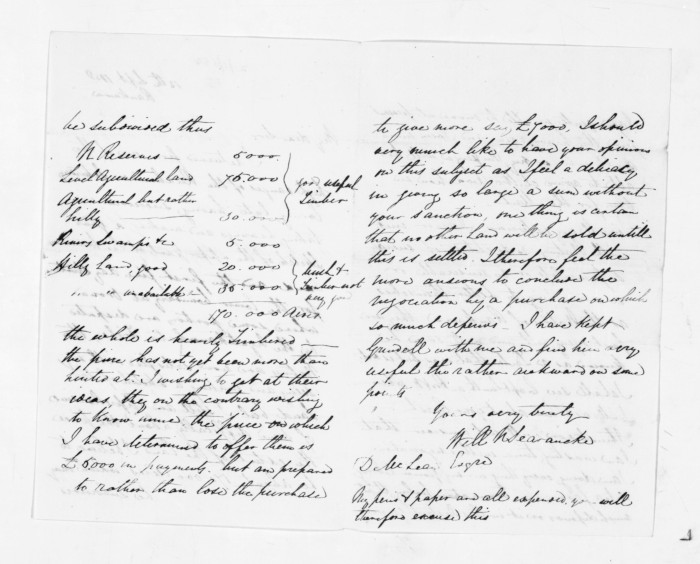 be subdivided thus
N Reserves — 5000
Level Agricultural land 75.000 } good useful
Agricultural but rather Timber
hilly — 30.000
Rivers Swamps &c 5.000
Hilly land, good 20.000 } bush &
" " unavailable — 35.000 Timber not
very good
170.000 Acres
the whole is heavily Timbered —
the price has not yet been more than
hinted at. I wishing to get at their
ideas, they on the contrary wishing
to know mine, the price on which
I have determined to offer them is
£5000 in payments but am prepared
to rather than lose the purchase
to give more say £7000, I should
very much like to have your opinions
on this subject as I feel a delicacy
in giving so large a sum without
your sanction, one thing is certain
that no other Land will be sold untill
this is settled. I therefore feel the
more anxious to conclude the
negociation by a purchase on which
so much depends — I have kept
Grindell with me and find him very
useful tho rather awkward on some
points
Yours very truly
Will N Searancke
D McLean Esqre
My pens & paper are all expended you will
therefore excuse this